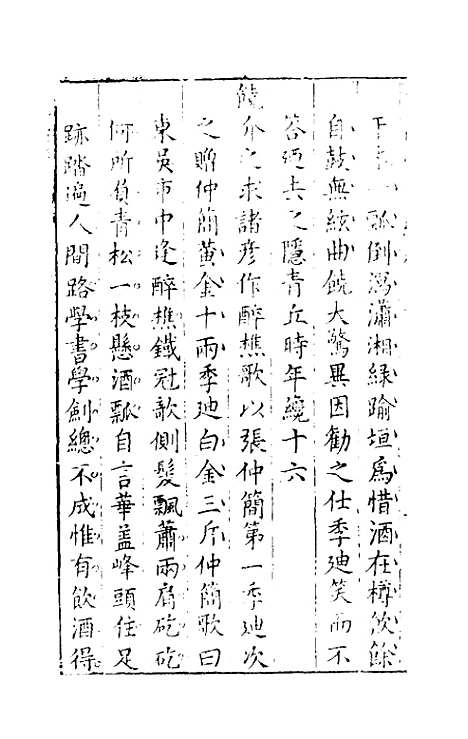 瓢倒瀉瀟湘綠踰垣爲惜酒在樽飲餘
自鼓無絃曲饒大驚異因勸之仕季迪笑而不
答迺去之隱青丘時年纔十六
饒介之求諸彦作醉樵歌以張仲簡第一季迪次
之贈仲簡黃金十兩季迪白金三斤仲簡歌曰
東吳市中逢醉樵鐵冠欹側髮飄蕭兩肩矻矻
何所負青松一枝懸酒瓢自言華盖峰頭住足
跡踏遍人間路學書學劍總不成惟有飲酒得